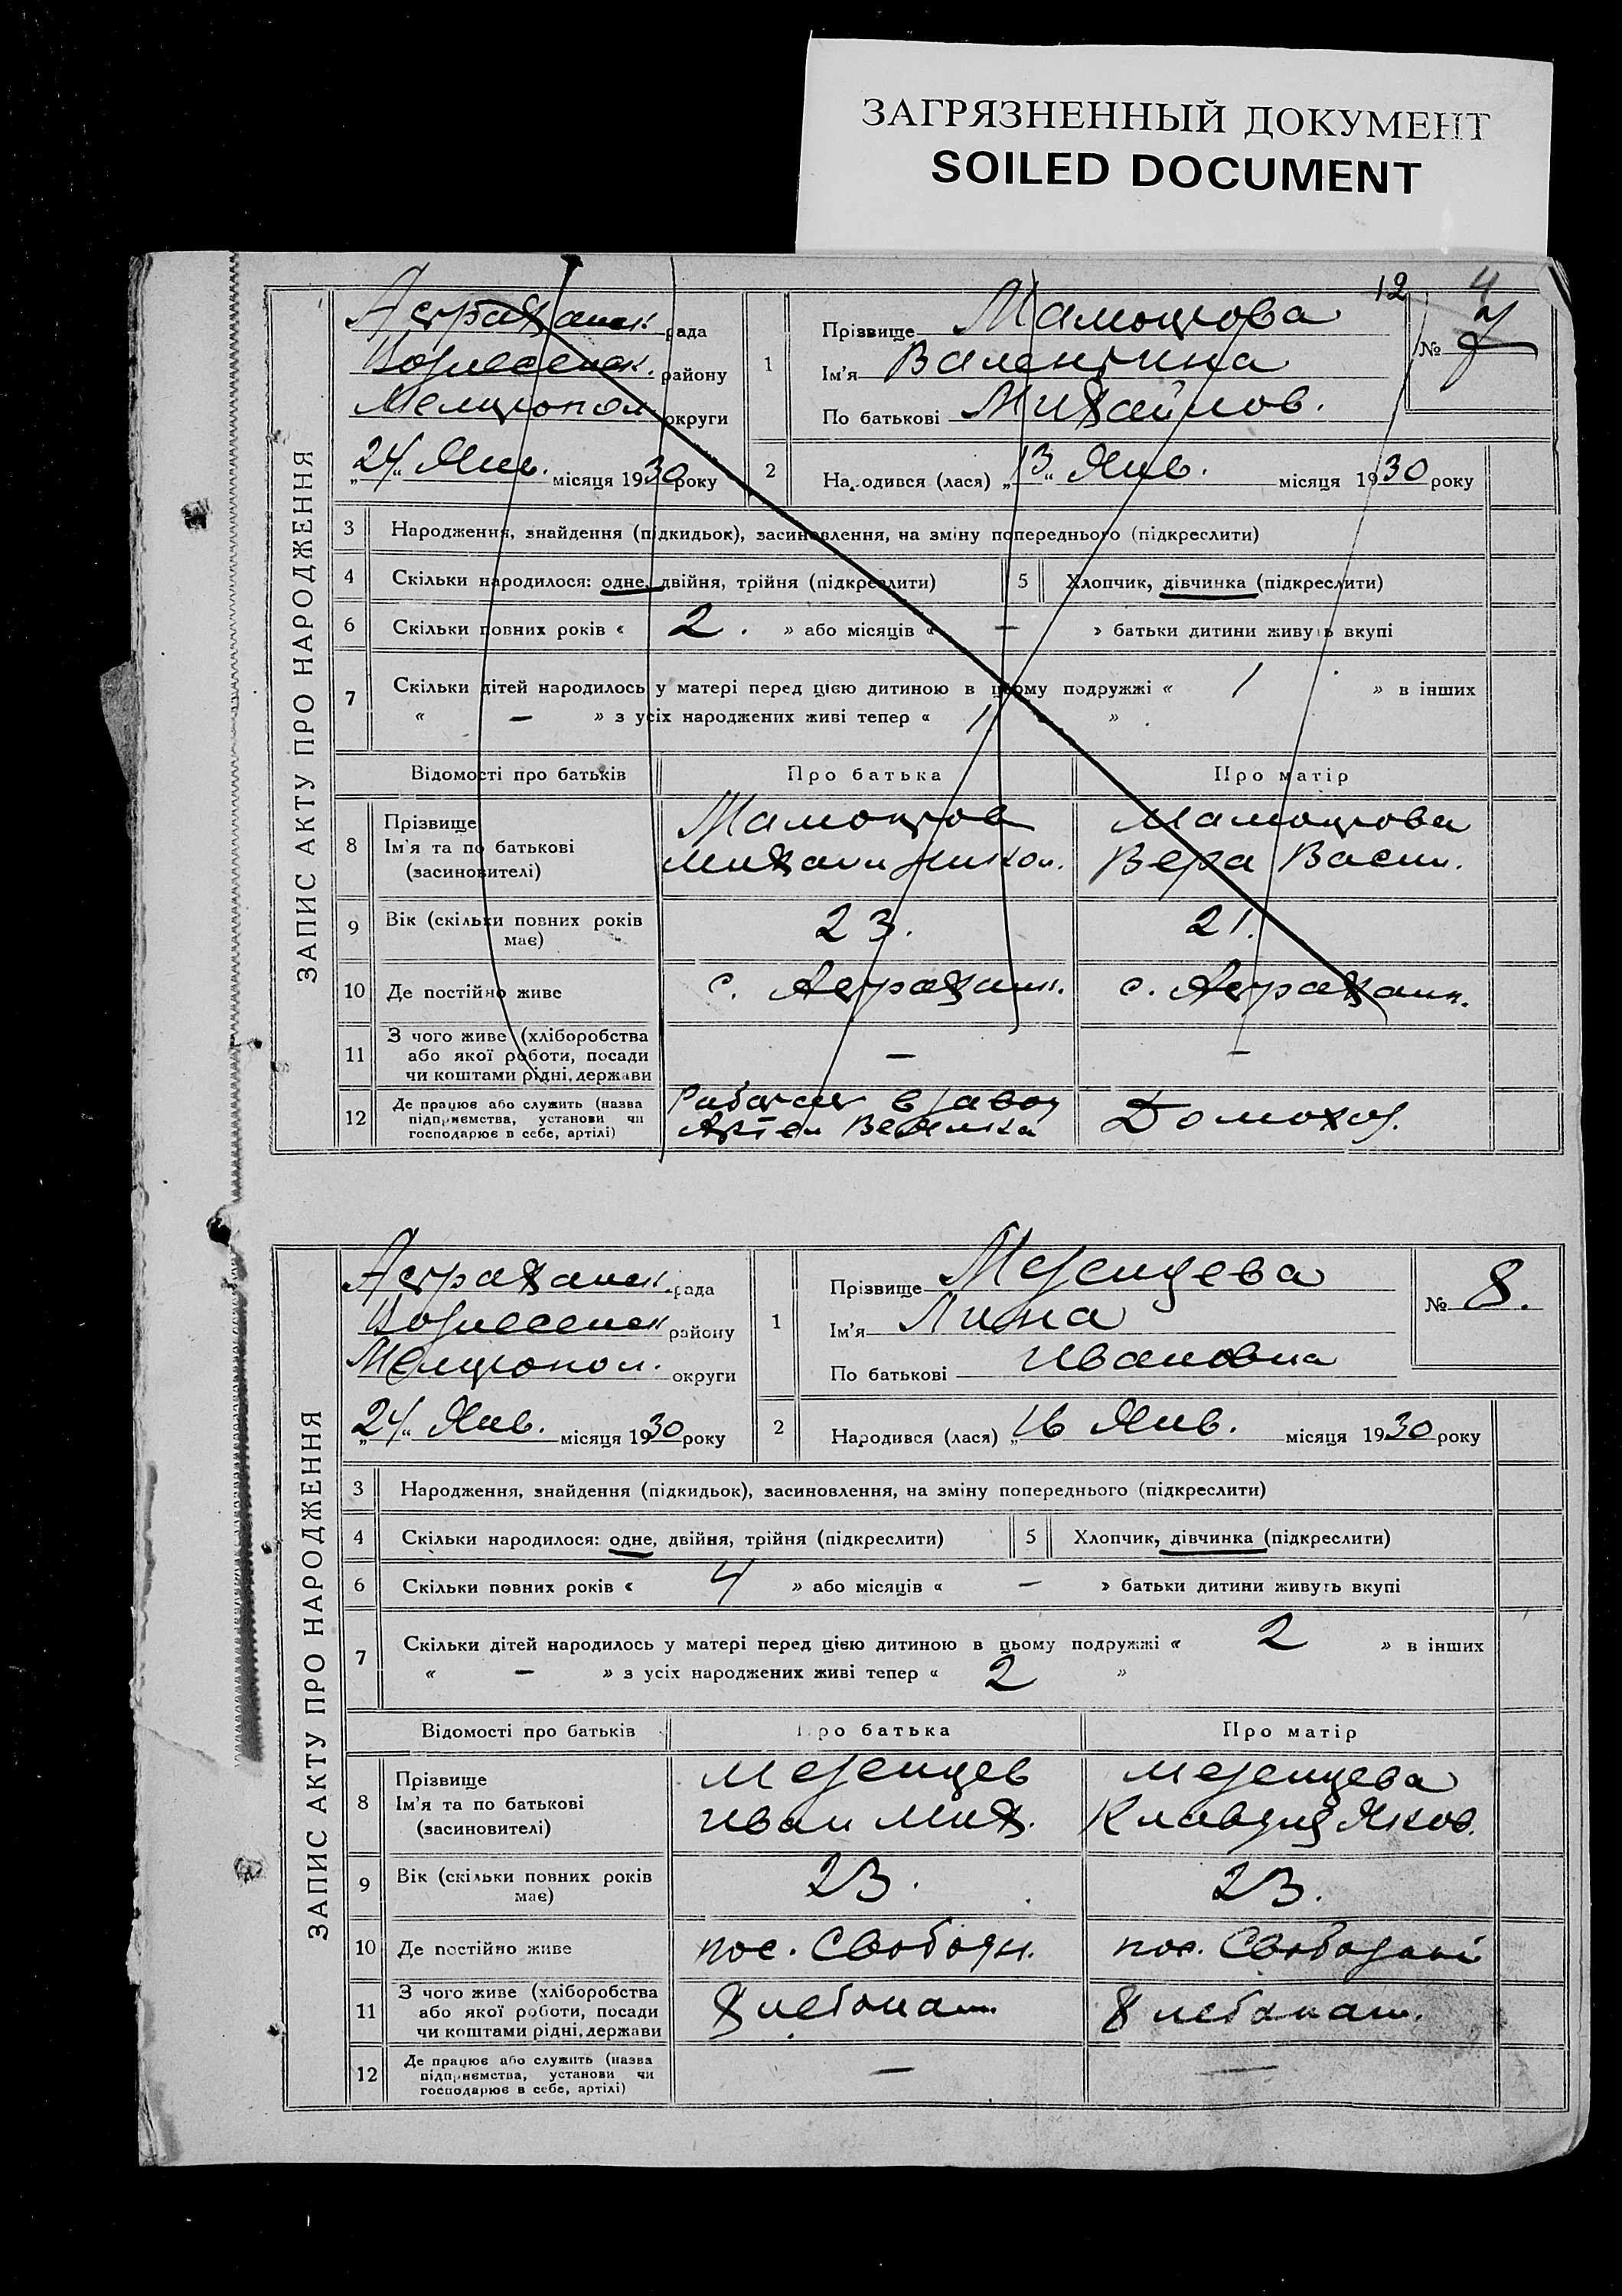 ЗАГРЯЗНЕННЫЙ ДОКУМЕНТ
SOILED DOCUMENT
12 4
ЗАПИС АКТУ ПРО НАРОДЖЕННЯ
Астраханск. рада
Вознесенск. району
Мелитопол округи
„24“ Янв. місяця 1930 року
1 Прізвище Мамонтова
Ім'я Валентина
По батькові Михайлов.
№ 7
2 Народився (лася) „13“ Янв. місяця 1930 року
3 Народження, знайдення (підкидьок), засиновлення, на зміну попереднього (підкреслити)
4 Скільки народилося: одне, двійня, трійня (підкреслити) 5 Хлопчик, дівчинка (підкреслити)
6 Скільки повних років « 2. » або місяців « — » батьки дитини живуть вкупі
7 Скільки дітей народилось у матері перед цією дитиною в цьому подружжі « 1 » в інших
« — » з усіх народжених живі тепер « 1 »
Відомості про батьків Про батька Про матір
8 Прізвище Ім'я та по батькові (засиновителі)
Мамонтов Мамонтова
Михаил Никол. Вера Васил.
9 Вік (скільки повних років має) 23. 21.
10 Де постійно живе с. Астрахан. с. Астрахан.
11 З чого живе (хліборобства або якої роботи, посади чи коштами рідні, держави — —
12 Де працює або служить (назва підприємства, установи чи господарює в себе, артілі)
Работает в завод Домохоз.
ЗАПИС АКТУ ПРО НАРОДЖЕННЯ
Астраханск. рада
Вознесенск району
Мелитопол. округи
„24“ Янв. місяця 1930 року
1 Прізвище Мезенцева
Ім'я Лина
По батькові Ивановна
№ 8.
2 Народився (лася) „16 Янв. місяця 1930 року
3 Народження, знайдення (підкидьок), засиновлення, на зміну попереднього (підкреслити)
4 Скільки народилося: одне, двійня, трійня (підкреслити) 5 Хлопчик, дівчинка (підкреслити)
6 Скільки повних років « 4 » або місяців « — » батьки дитини живуть вкупі
7 Скільки дітей народилось у матері перед цією дитиною в цьому подружжі « 2 » в інших
« — » з усіх народжених живі тепер « 2 »
Відомості про батьків Про батька Про матір
8 Прізвище Ім'я та по батькові (засиновителі)
Мезенцев Мезенцева
Иван Мих. Клавдия Яков.
9 Вік (скільки повних років має) 23. 23.
10 Де постійно живе пос. Свободн. пос.
11 З чого живе (хліборобства або якої роботи, посади чи коштами рідні, держави Хлебопаш. Хлебопаш.
12 Де працює або служить (назва підприємства, установи чи господарює в себе, артілі) — —